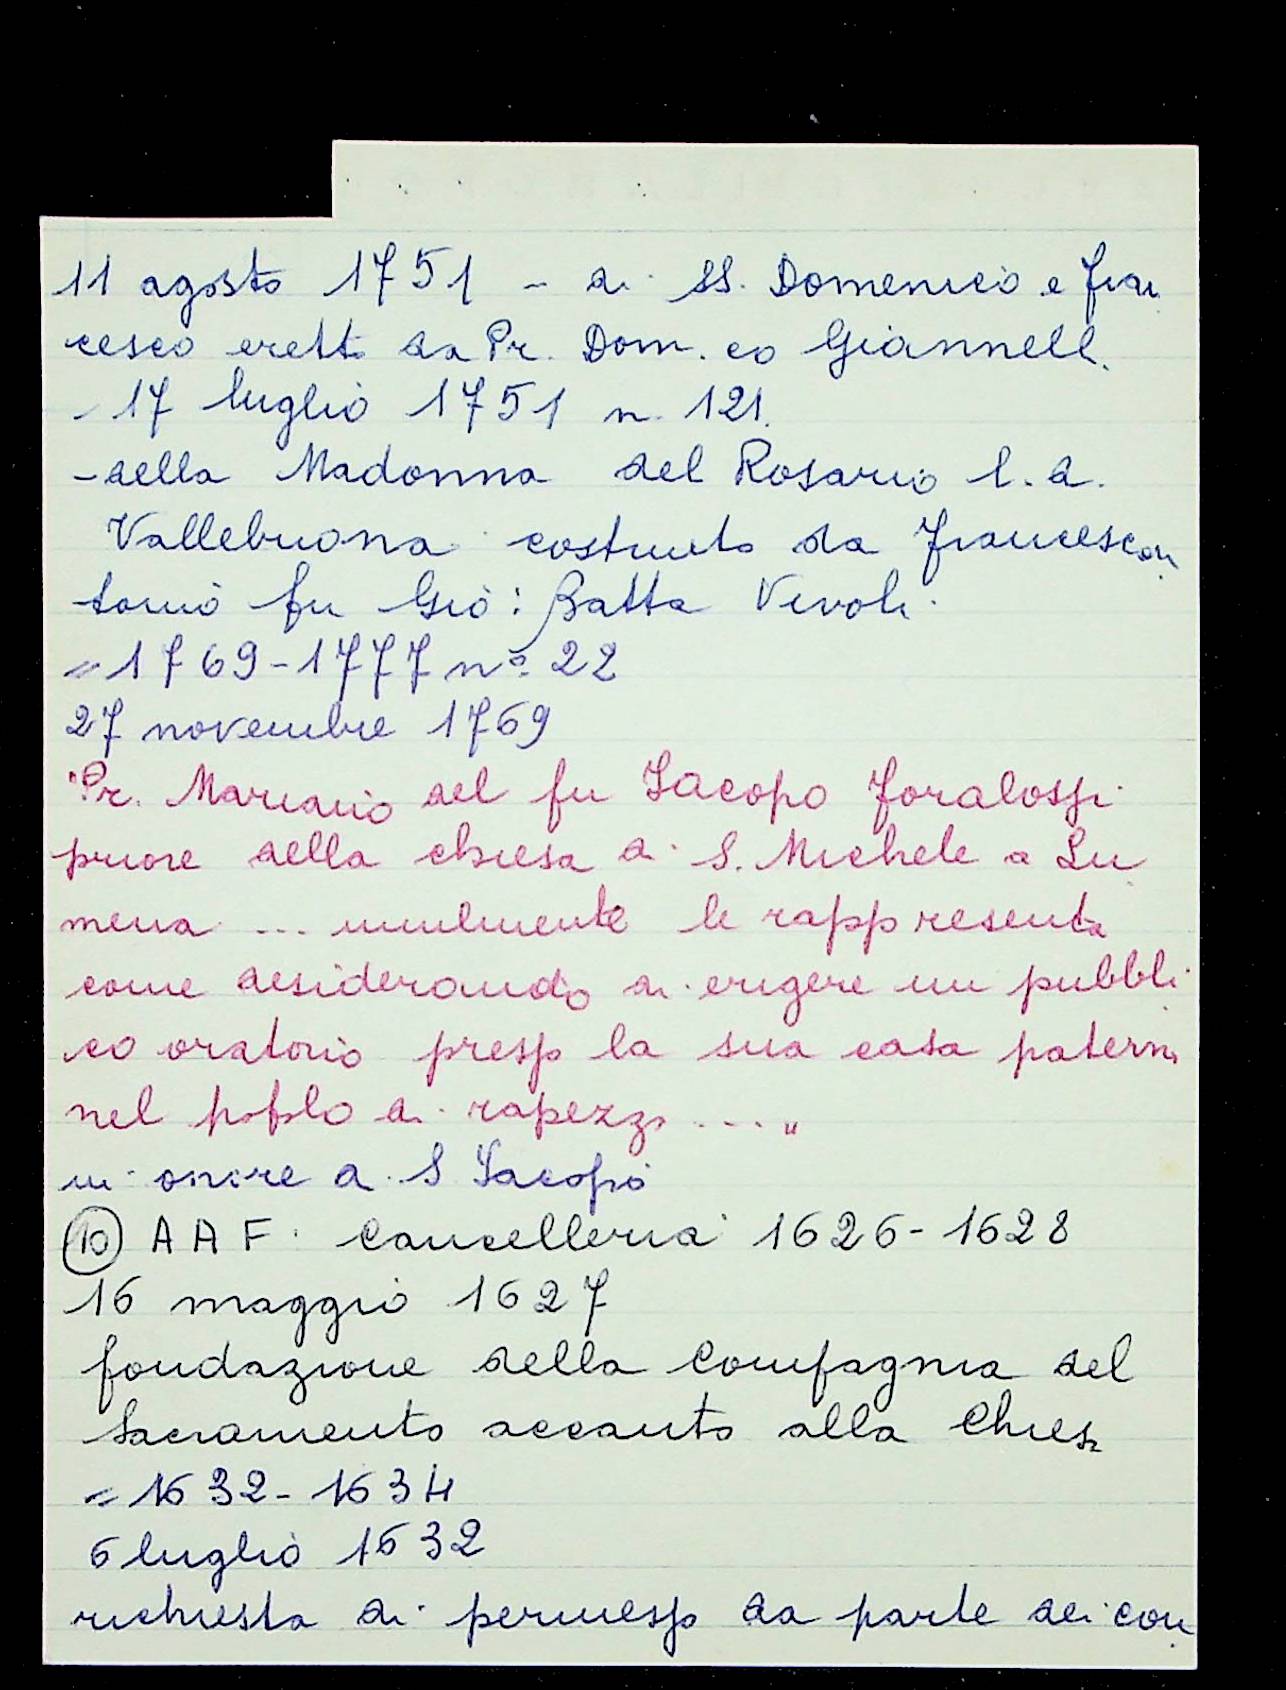 11 agosto 1751 - di SS. Domenico e Fran
cesco eretto da Pr. Dom.co Giannelli
- 17 luglio 1751 n. 121.
- della Madonna del Rosario l.d.
Vallebuona costruito da Francescan
tonio fu Giò: Batta Vivoli.
= 1769-1777 nº 22
27 novembre 1769
"Pr. Mariano del fu Jacopo
priore della chiesa di S. Michele a Lu
mena ... umilmente le rappresenta
come desiderando di erigere un pubbli
co oratorio presso la sua casa paterna
nel popolo di rapezzo ..."
in onore di S Jacopo
(10) A A F. Cancelleria 1626-1628
16 maggio 1627
fondazione della Compagnia del
Sacramento accanto alla Chiesa
= 1632-1634
6 luglio 1632
richiesta di permesso da parte dei con